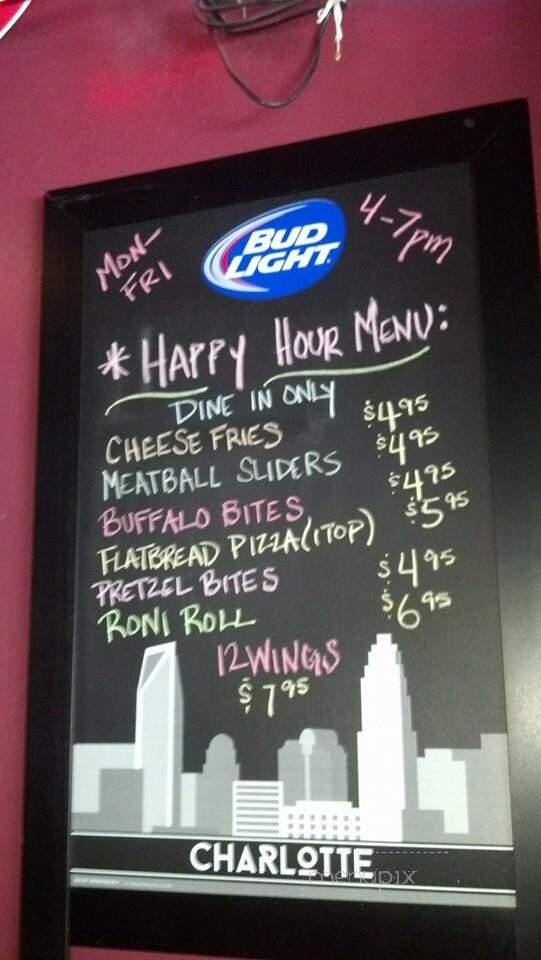 MON-
FRI
BUD
LIGHT
4-7pm
* HAPPY HOUR MENU:
DINE IN ONLY
CHEESE FRIES $4.95
MEATBALL SLIDERS $4.95
BUFFALO BITES $4.95
FLATBREAD PIZZA (1TOP) $5.95
PRETZEL BITES $4.95
RONI ROLL $6.95
12 WINGS
$7.95
CHARLOTTE
menupix